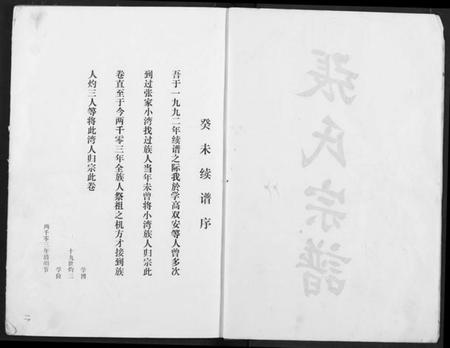 癸未续谱序
吾于一九九二年续谱之际我於学高双安等人曾多次
到过张家小湾找过族人当年未曾将小湾族人归宗此
卷直至于今两千零三年全族人祭祖之机方才接到族
人灼三人等将此湾人归宗此卷
学博
十九世灼三
学俭
两千零三年清明节
張氏宗譜